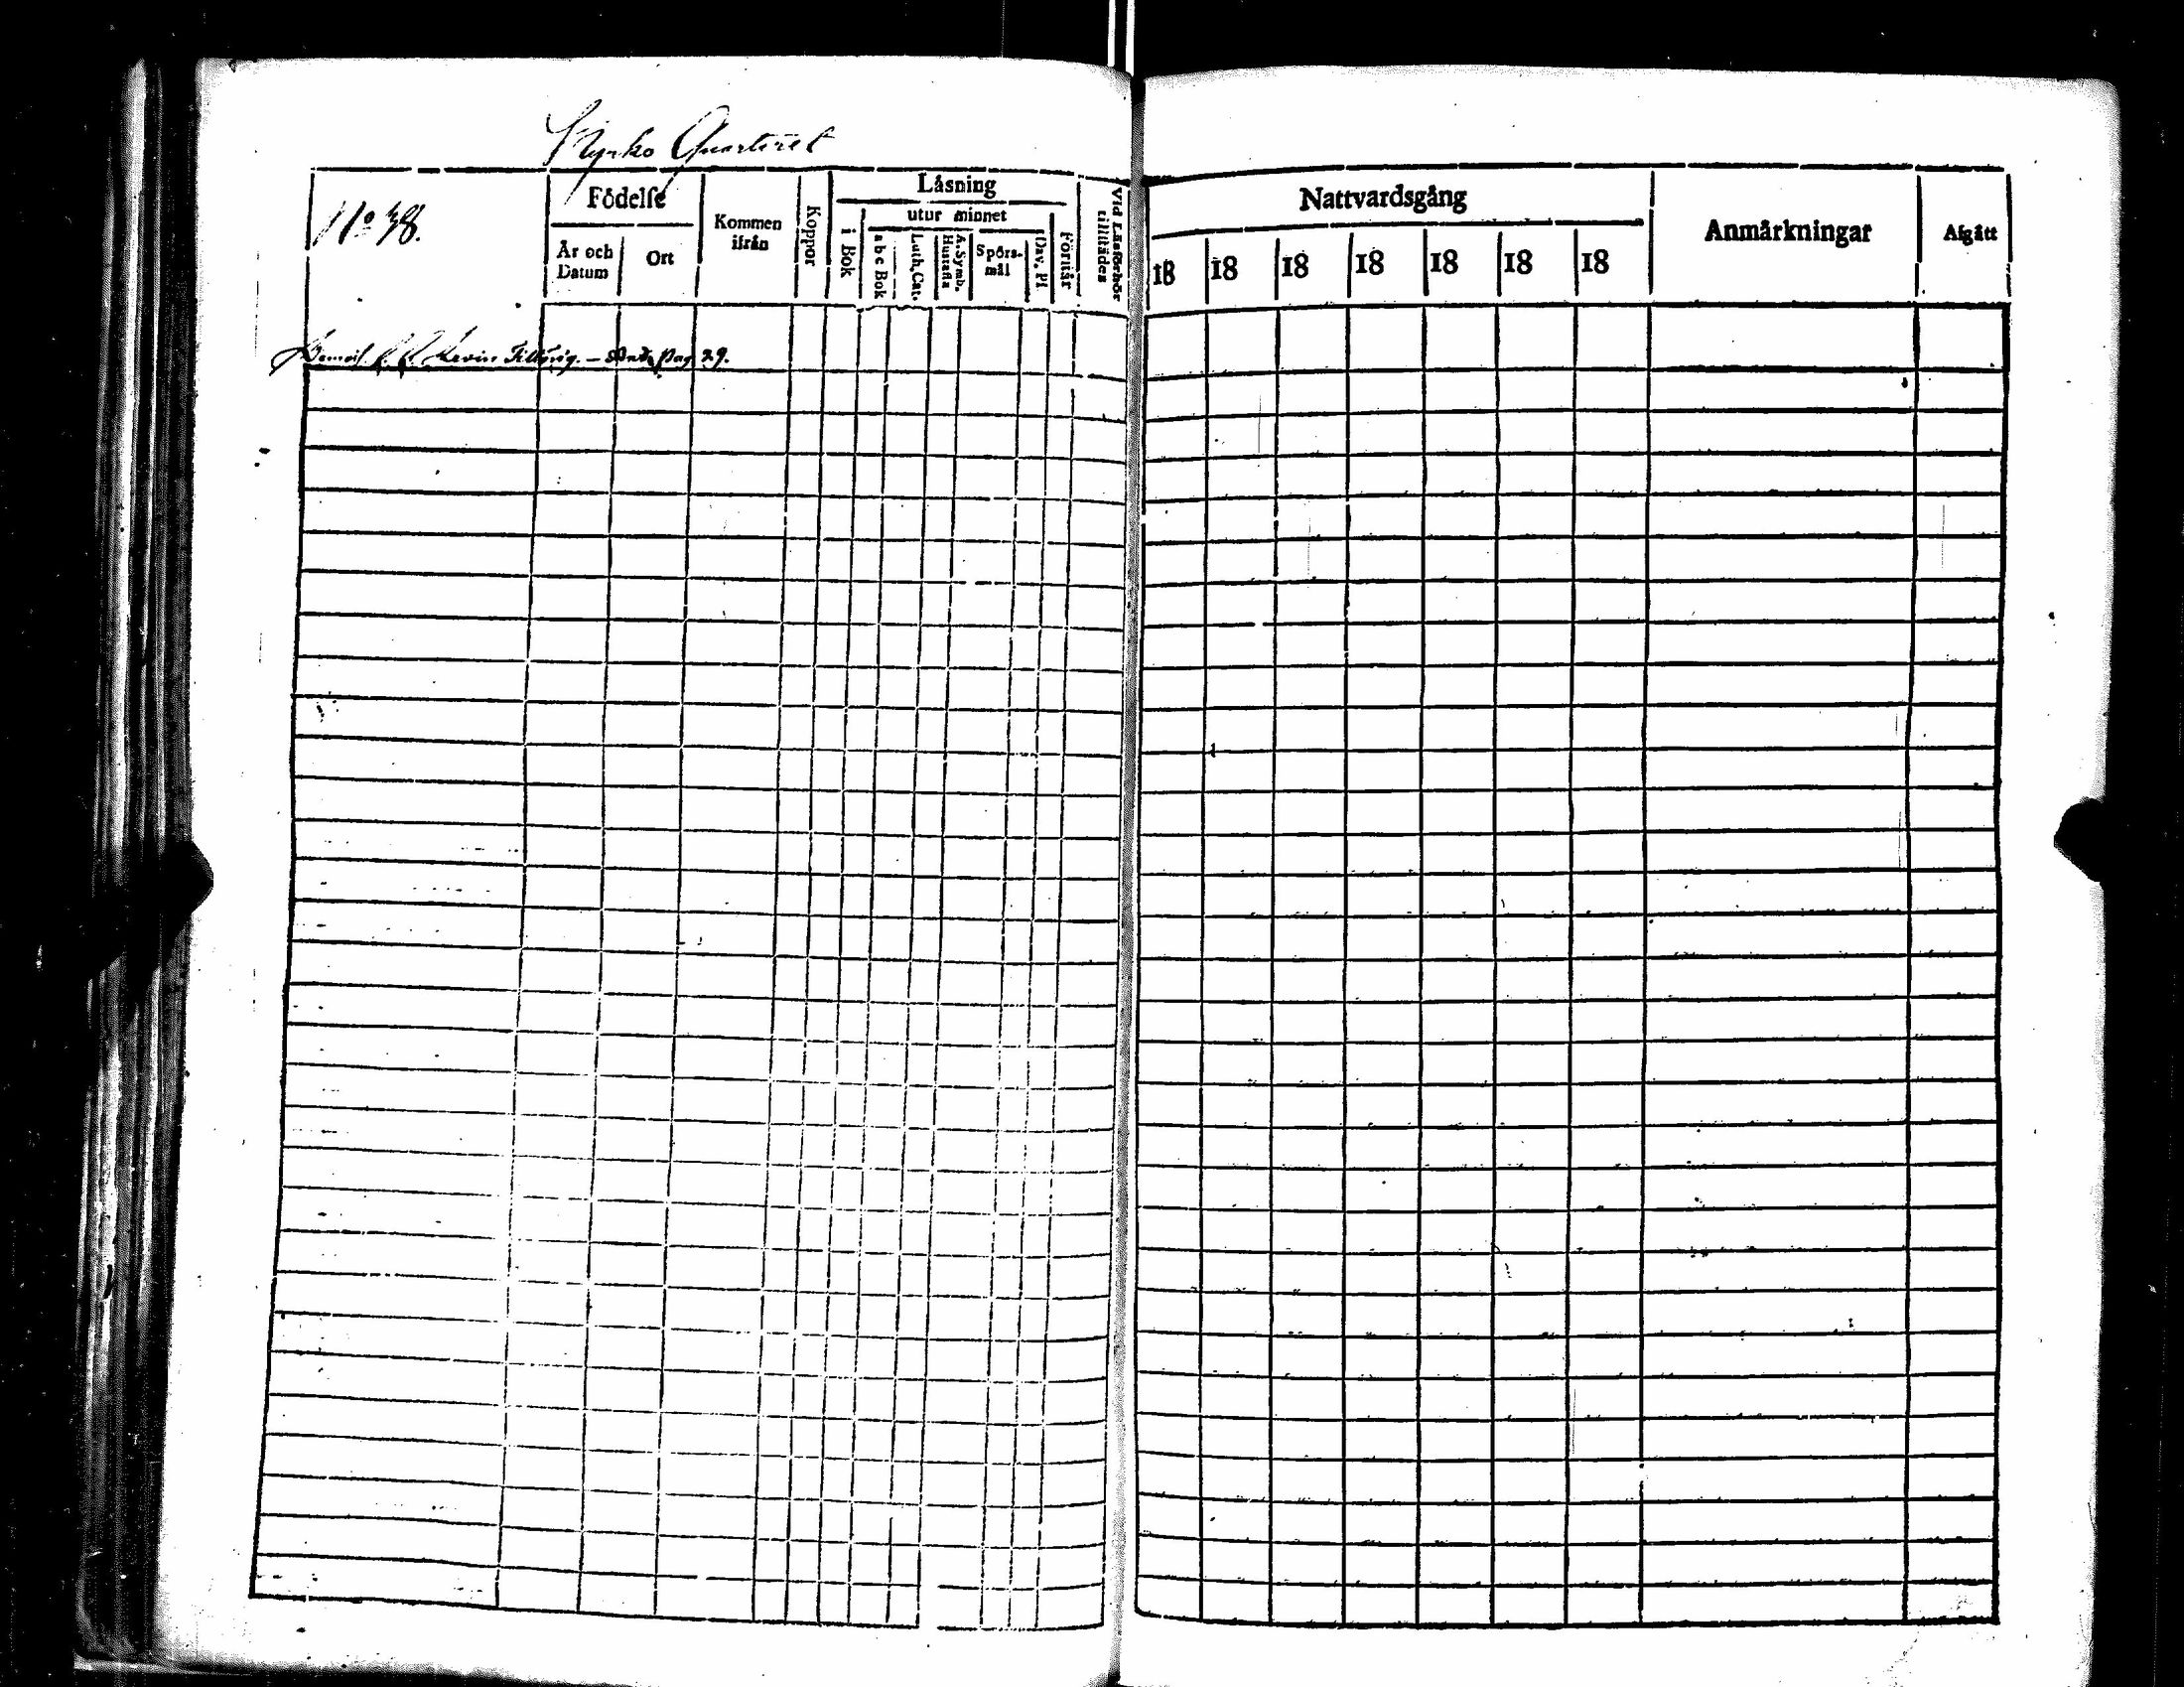 Kyrko Quarteret
No 38.
Födelse
År och Datum
Ort
Kommen ifrån
Koppor
Läsning
i Bok
utur minnet
a b c Bok
Luth. Cat.
A. Symb. Hustafla
Spörs-mål
Dav. Ps.
Förstår
Vid Läsförhör tillstädes
Nattvardsgång
18 18 18 18 18 18 18
Anmärkningar
Afgått
Tillhörig. — pag. 29.